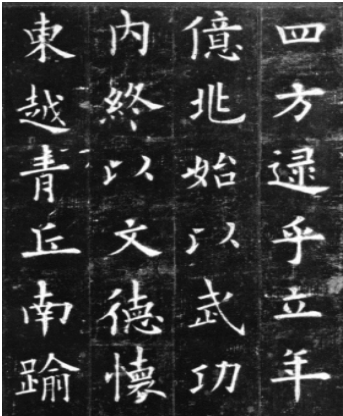 四方逯乎立年
億兆始以武功
内終以文德懷
東越青丘南踰